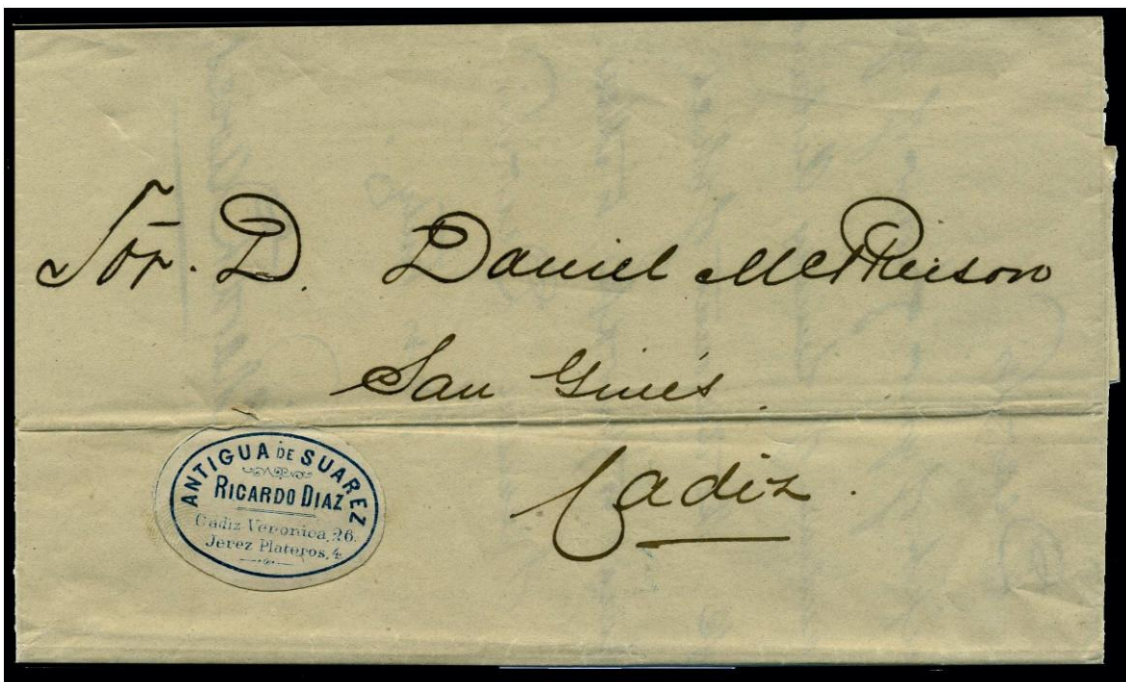 Sor. D. Daniel McPherson
San Ginés.
Cadiz.
ANTIGUA DE SUAREZ
RICARDO DIAZ
Cadiz Veronica, 26.
Jerez Plateros, 4